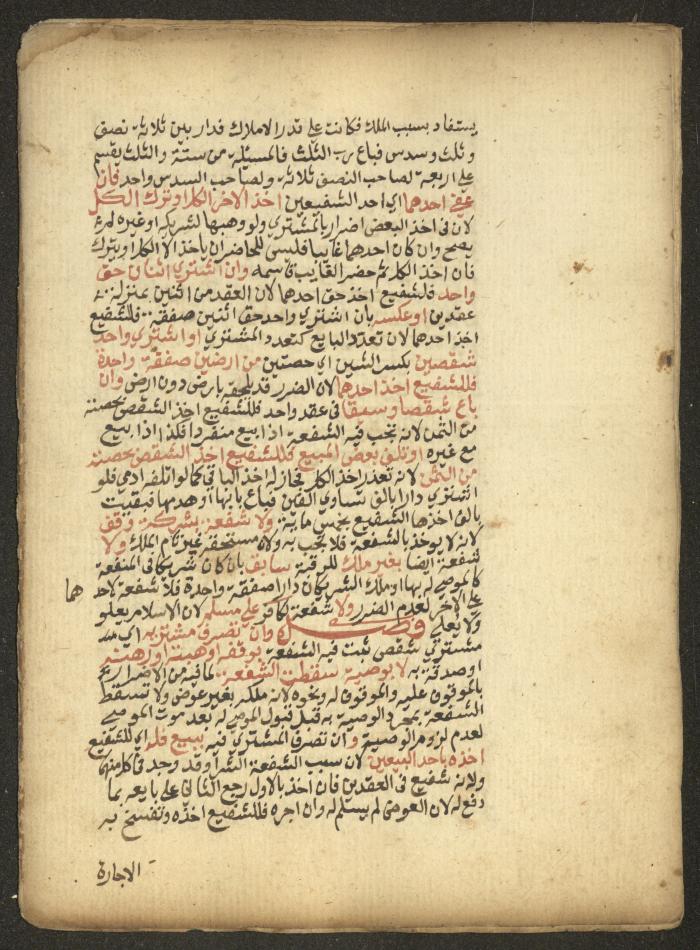 يستفاد بسبب الملك فكانت على قدر الاملاك فدار بين ثلاثة نصف
وثلث وسدس فباع رب الثلث فالمسئلة من ستة والثلث يقسم
على اربعة لصاحب النصف ثلاثة ولصاحب السدس واحد فان
عفى احدهما اي احد الشفيعين اخذ الاخر الكل او ترك الكل
لان في اخذ البعض اضرار بالمشتري ولو وهبها لشريكه او غيره لم
يصح وان كان احدهما غايبا فليس للحاضر ان ياخذ الا الكل او يترك
فان اخذ الكل ثم حضر الغايب قاسمه وان اشترى اثنان حق
واحد فللشفيع اخذ حق احدهما لان العقد من اثنين بمنزلة
عقدين او عكسه بان اشترى واحد حق اثنين صفقة فللشفيع
اخذ احدهما لان تعدد البايع كتعدد المشتري او اشترى واحد
شقصين بكسر الشين اي حصتين من ارضين صفقة واحدة
فللشفيع اخذ احدهما لان الضرر قد يلحقه بارض دون ارض وان
باع شقصا وسيفا في عقد واحد فللشفيع اخذ الشقص بحصته
من الثمن لانه تجب فيه الشفعة اذا بيع منفردا فكذا اذا بيع
مع غيره او تلف بعض المبيع فللشفيع اخذ الشقص بحصته
من الثمن لانه تعذر اخذ الكل فجاز له اخذ الباقي كما لو اتلفه ادمي فلو
اشترى دارا بالف تساوي الفين فباع بابها او هدمها فبقيت
بالف اخذها الشفيع بخمس ماية ولا شفعة بشركة وقف
لانه لا يوخذ بالشفعة فلا تجب به ولان مستحقه غير تام الملك ولا
شفعة ايضا بغير ملك للرقبة سابق بان كان شريكا في المنفعة
كالموصى له بها او ملك الشريكان دارا صفقة واحدة فلا شفعة لاحد هما
على الاخر لعدم الضرر ولا شفعة لكافر على مسلم لان الاسلام يعلو
ولا يعلى فصل وان تصرف مشتريه اي
مشتري شقص ثبت فيه الشفعة بوقفه او هبته او رهنه
او صدقة به لا بوصية سقطت الشفعة لما فيه من الاضرار
بالموقوف عليه والموهوب له ونحوه لانه ملكه بغير عوض ولا تسقط
الشفعة بمجرد الوصية به قبل قبول الموصى له بعد موت الموصي
لعدم لزوم الوصية وان تصرف المشتري فيه ببيع فله اي للشفيع
اخذه باحد البيعين لان سبب الشفعة الشرا وقد وجد في كل منهما
ولانه شفيع في العقدين فان اخذ بالاول رجع الثاني على بايعه بما
دفع له لان العوض لم يسلم له وان اجره فللشفيع اخذه وتنفسخ به
الاجارة